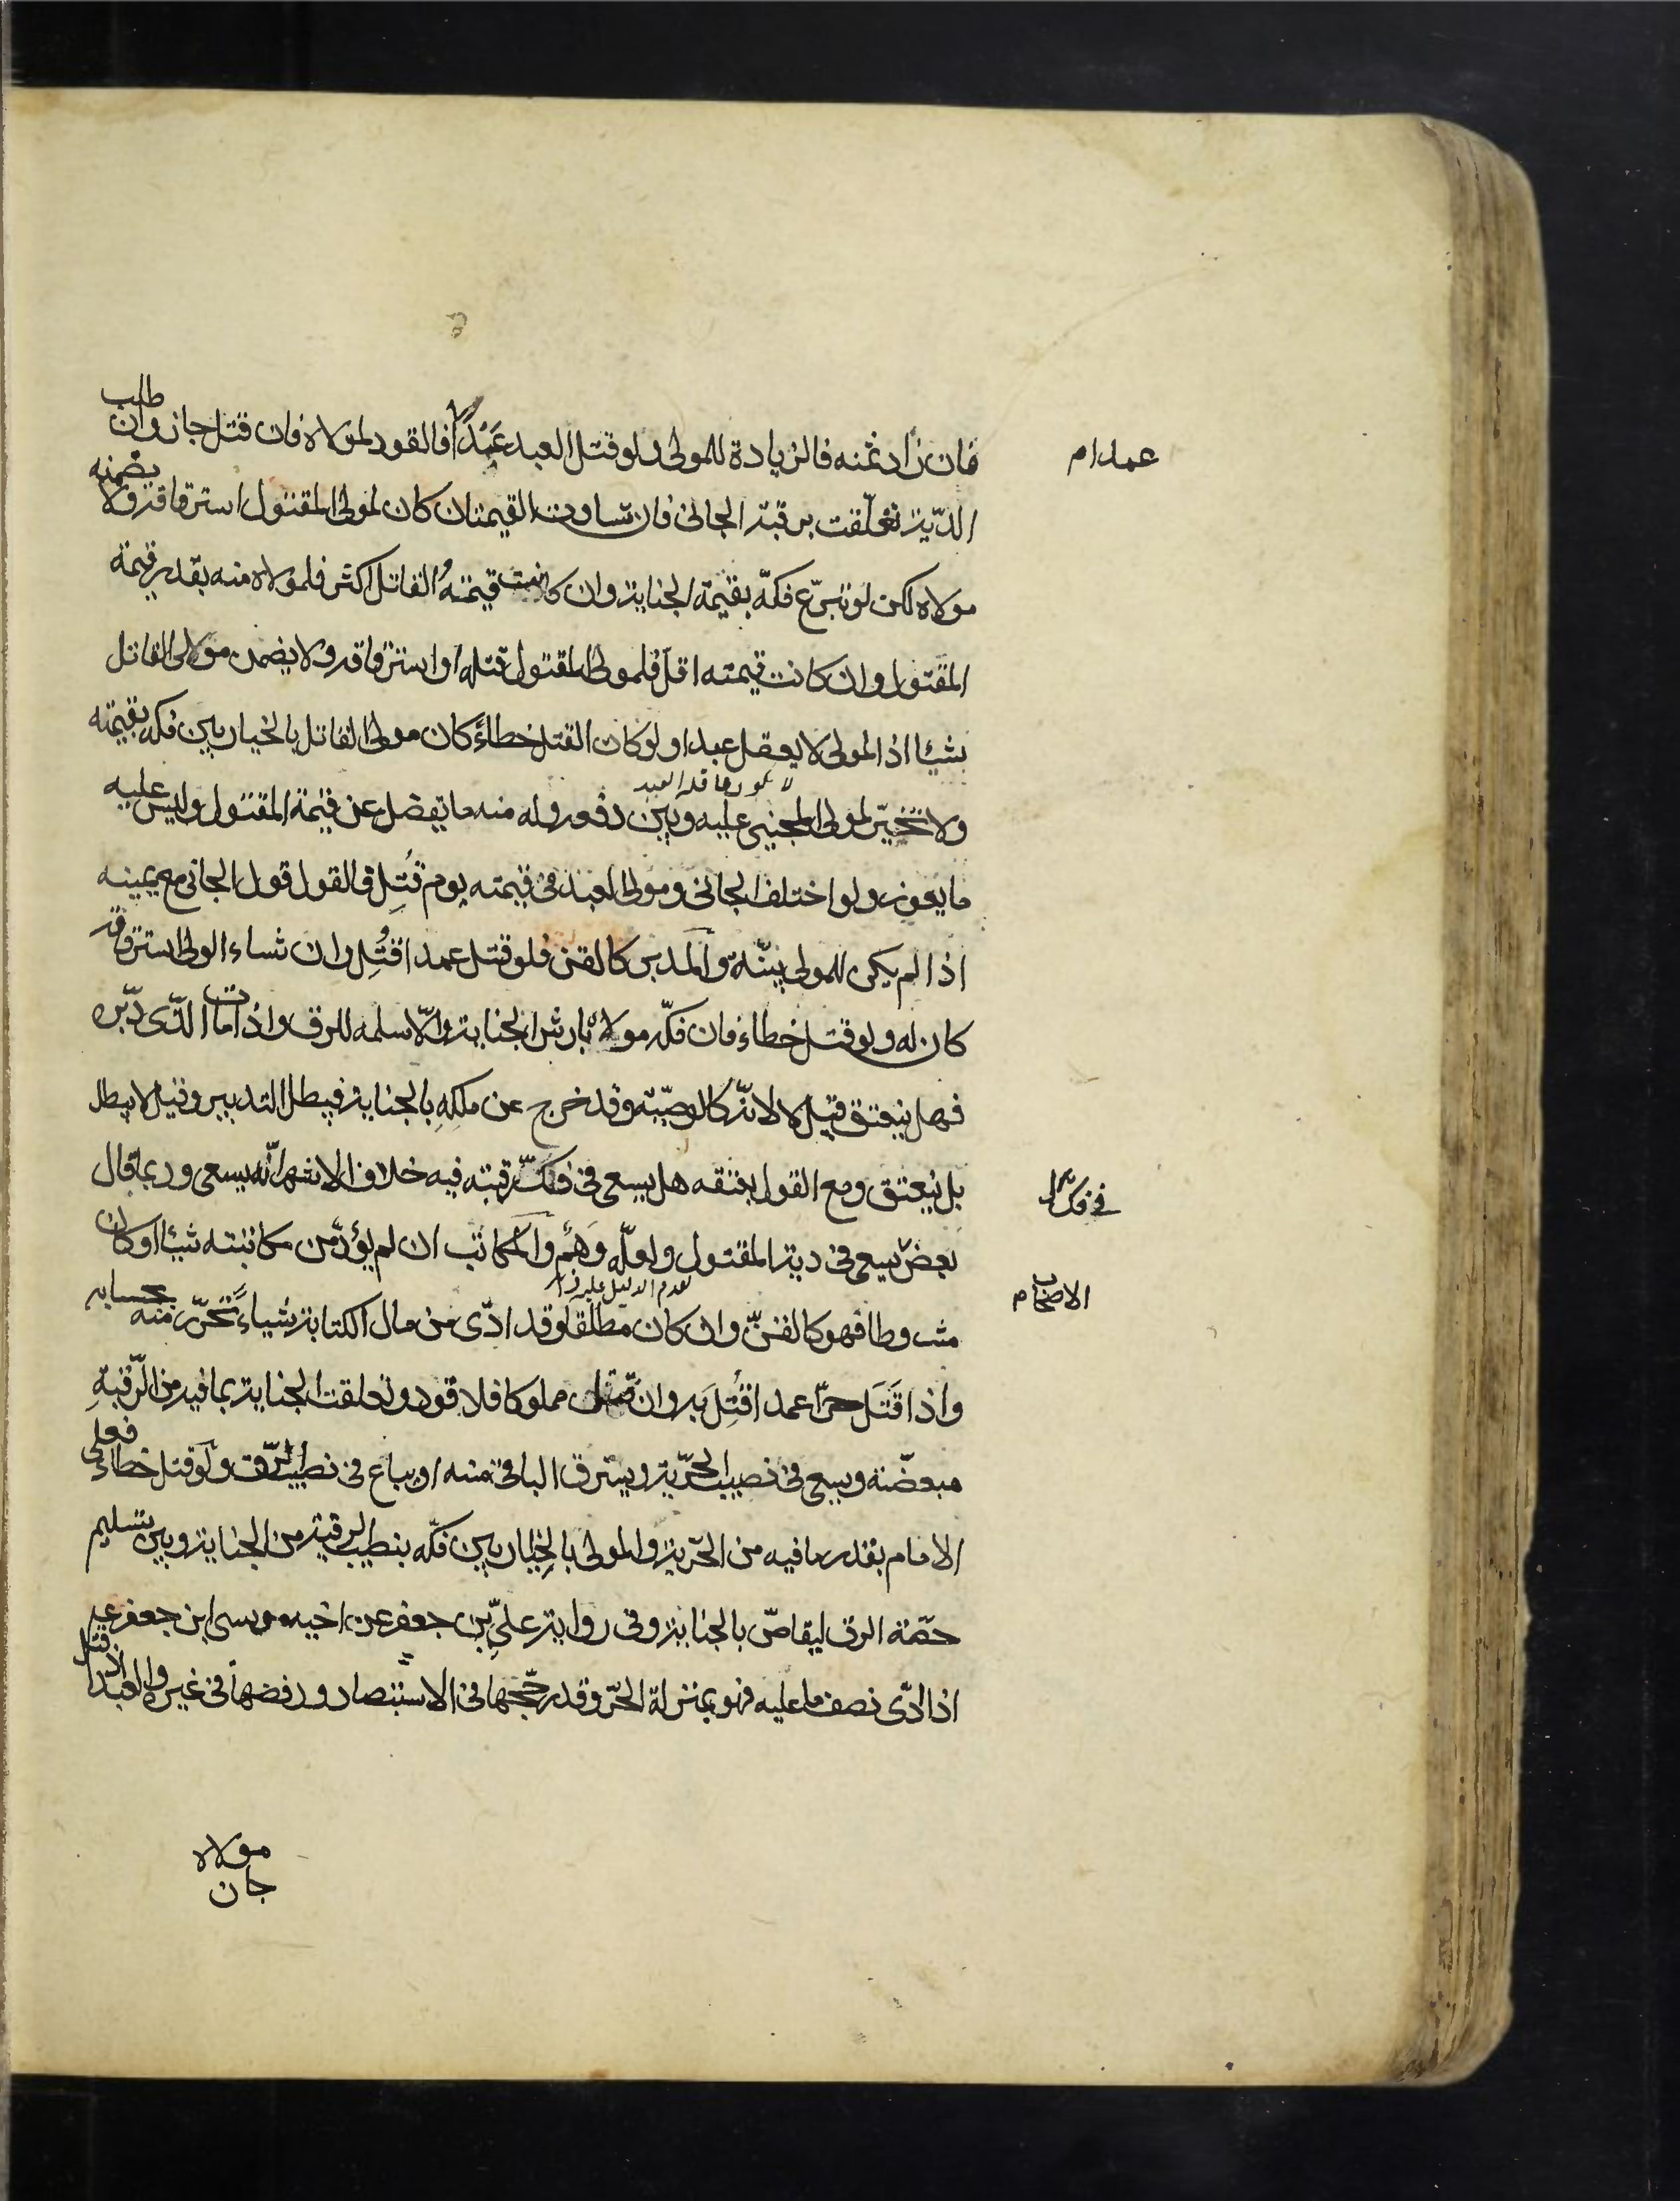 فان زاد ثمنه فالزيادة للمولى ولو قتل العبد عَبْدًا فالقود لمولاه فان قتل جاز وان طلب
الدّية تعلّقت برقبة الجانى فان تساوت القيمتان كان لمولى المقتول استرقاقه ولا يضمنه
مولاه لكن لو تبرّع فكّه بقيمة الجناية وان كانت قيمتهُ القاتل اكثر فلمولاه منه بقدر قيمة
المقتول وان كانت قيمته اقلّ فلمولى المقتول قتله او استرقاقه ولا يضمن مولى القاتل
شيئا اذ المولى لا يعقل عبدا ولو كان القتل خطاءً كان مولى القاتل بالخيار بين فكه بقيمته
ولا تخيّر لمولى المجنى عليه وبين دفعه وله منه ما يفضل عن قيمة المقتول وليس عليه
ما يعوز ولو اختلف الجانى ومولى العبد فى قيمته يوم قُتِل فالقول قول الجانى مع يمينه
اذا لم يكن للمولى بيّنة والمدبر كالقن فلو قتل عمدا قُتِل وان شاء الولى استرقاقه
كان له ولو قتل خطاء فان فكّه مولاه بارش الجناية والّا سلمه للرق واذا مات الذّى دبّره
فهل ينعتق قيل لا لانّه كالوصيّة وقد خرج عن ملكِهِ بالجناية فيبطل التدبير وقيل لا يبطل
بل ينعتق ومع القول بعتقه هل يسعى فى فكّ رقبته فيه خلاف الاشهر انّه يسعى وربما قال
بعضٌ يسعى فى دية المقتول ولعلّه وَهْم والمكاتب ان لم يؤدّ من مكاتبته شيئا او كان
مشروطا فهو كالقنّ وان كان مطلقا وقد ادّى من مال الكتابة شياءً تحرّر منه بحسابه
واذا قَتَل حرّا عمدا قُتِل به وان قتل مملوكا فلا قود وتعلقت الجناية بما فيه من الرّقبةِ
مبعضّة ويسعى فى نصيب الحرّية ويسترق الباقى منه او يباع فى نصيب الرّق ولو قتل خطاء فعلى
الامام بقدر ما فيه من الحرّية والمولى بالخِيار بين فكّه بنصيب الرقية من الجناية وبين تسليم
حصّة الرق ليقاصّ بالجناية وفى رواية علىِّ بن جعفر عن اخيه موسى ابن جعفر عليه
اذا ادّى نصف ما عليه فهو بمنزلة الحرّ وقد رجّحها فى الاستبصار ورفضها فى غيره والعبد اذا قتل
مولاه
جاز
عمدا م
فى فك
الاصحاب م